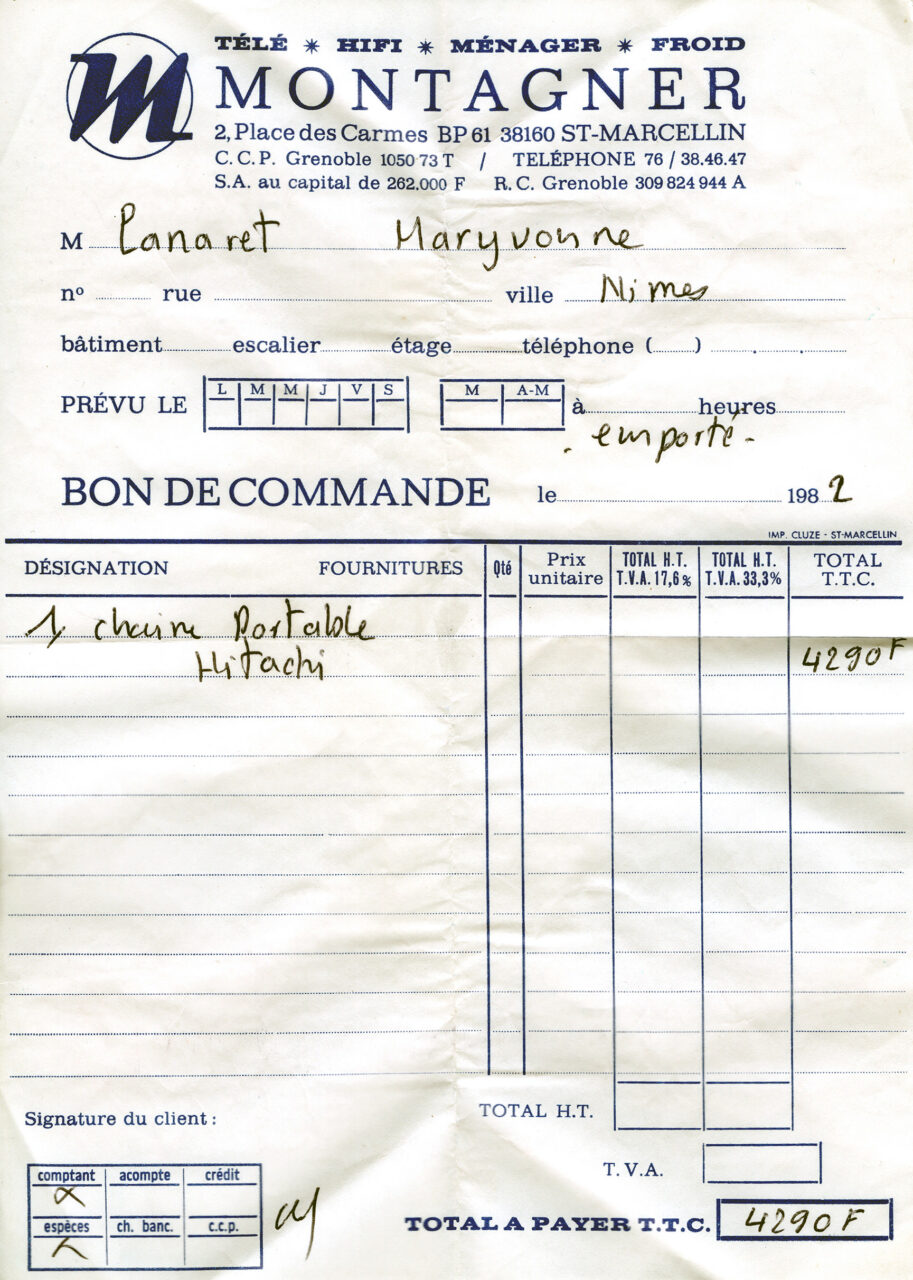 TÉLÉ * HIFI * MÉNAGER * FROID
M MONTAGNER
2, Place des Carmes BP 61 38160 ST-MARCELLIN
C.C.P. Grenoble 1050 73 T / TELÉPHONE 76 / 38.46.47
S.A. au capital de 262.000 F R.C. Grenoble 309 824 944 A
M Lanaret Maryvonne
nº rue ville Nimes
bâtiment escalier étage téléphone ( )
L M M J V S M A-M
PRÉVU LE à heures
. emporté -
BON DE COMMANDE le 1982
IMP. CLUZE - ST-MARCELLIN
DÉSIGNATION FOURNITURES Qté Prix unitaire TOTAL H.T. T.V.A. 17,6% TOTAL H.T. T.V.A. 33,3% TOTAL T.T.C.
1 chaine Portable
Hitachi 4290 F
Signature du client : TOTAL H.T.
T.V.A.
comptant acompte crédit
x
espèces ch. banc. c.c.p.
x
TOTAL A PAYER T.T.C. 4290 F